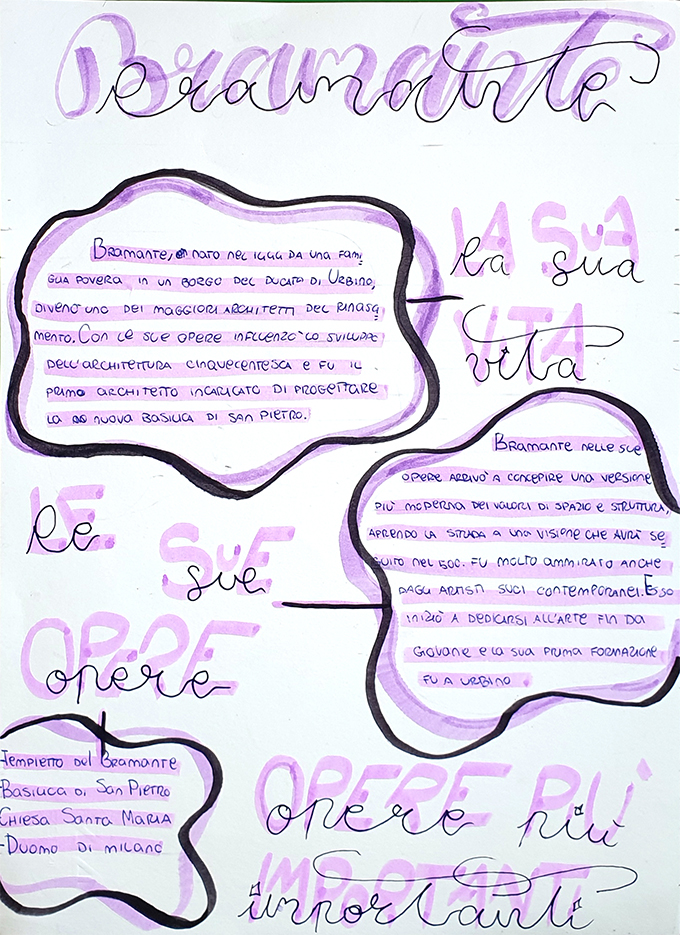 Bramante
Bramante, nato nel 1444 da una fami
glia povera in un borgo del Ducato di Urbino,
diventò uno dei maggiori architetti del Rinasci
mento. Con le sue opere influenzò lo sviluppo
dell'architettura cinquecentesca e fu il
primo architetto incaricato di progettare
la nuova Basilica di San Pietro.
la sua
vita
Bramante nelle sue
opere arrivò a concepire una versione
più moderna dei valori di spazio e struttura,
aprendo la strada a una visione che avrà se
guito nel 500. Fu molto ammirato anche
dagli artisti suoi contemporanei. Esso
iniziò a dedicarsi all'arte fin da
giovane e la sua prima formazione
fu a Urbino
le
sue
opere
-Tempietto del Bramante
-Basilica di San Pietro
-Chiesa Santa Maria
-Duomo di Milano
opere più
importanti